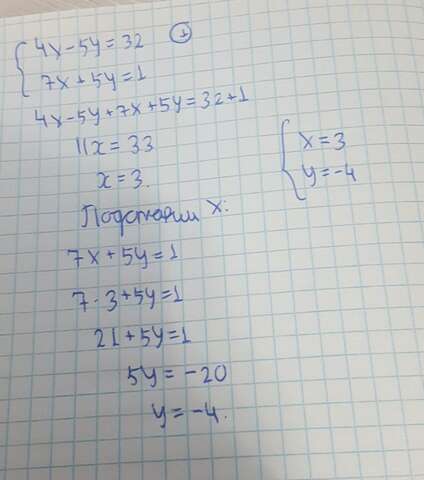 4x-5y=32 (+)
7x+5y=1
4x-5y+7x+5y=32+1
11x=33
x=3.
Подставим x:
7x+5y=1
7·3+5y=1
21+5y=1
5y=-20
y=-4.
x=3
y=-4